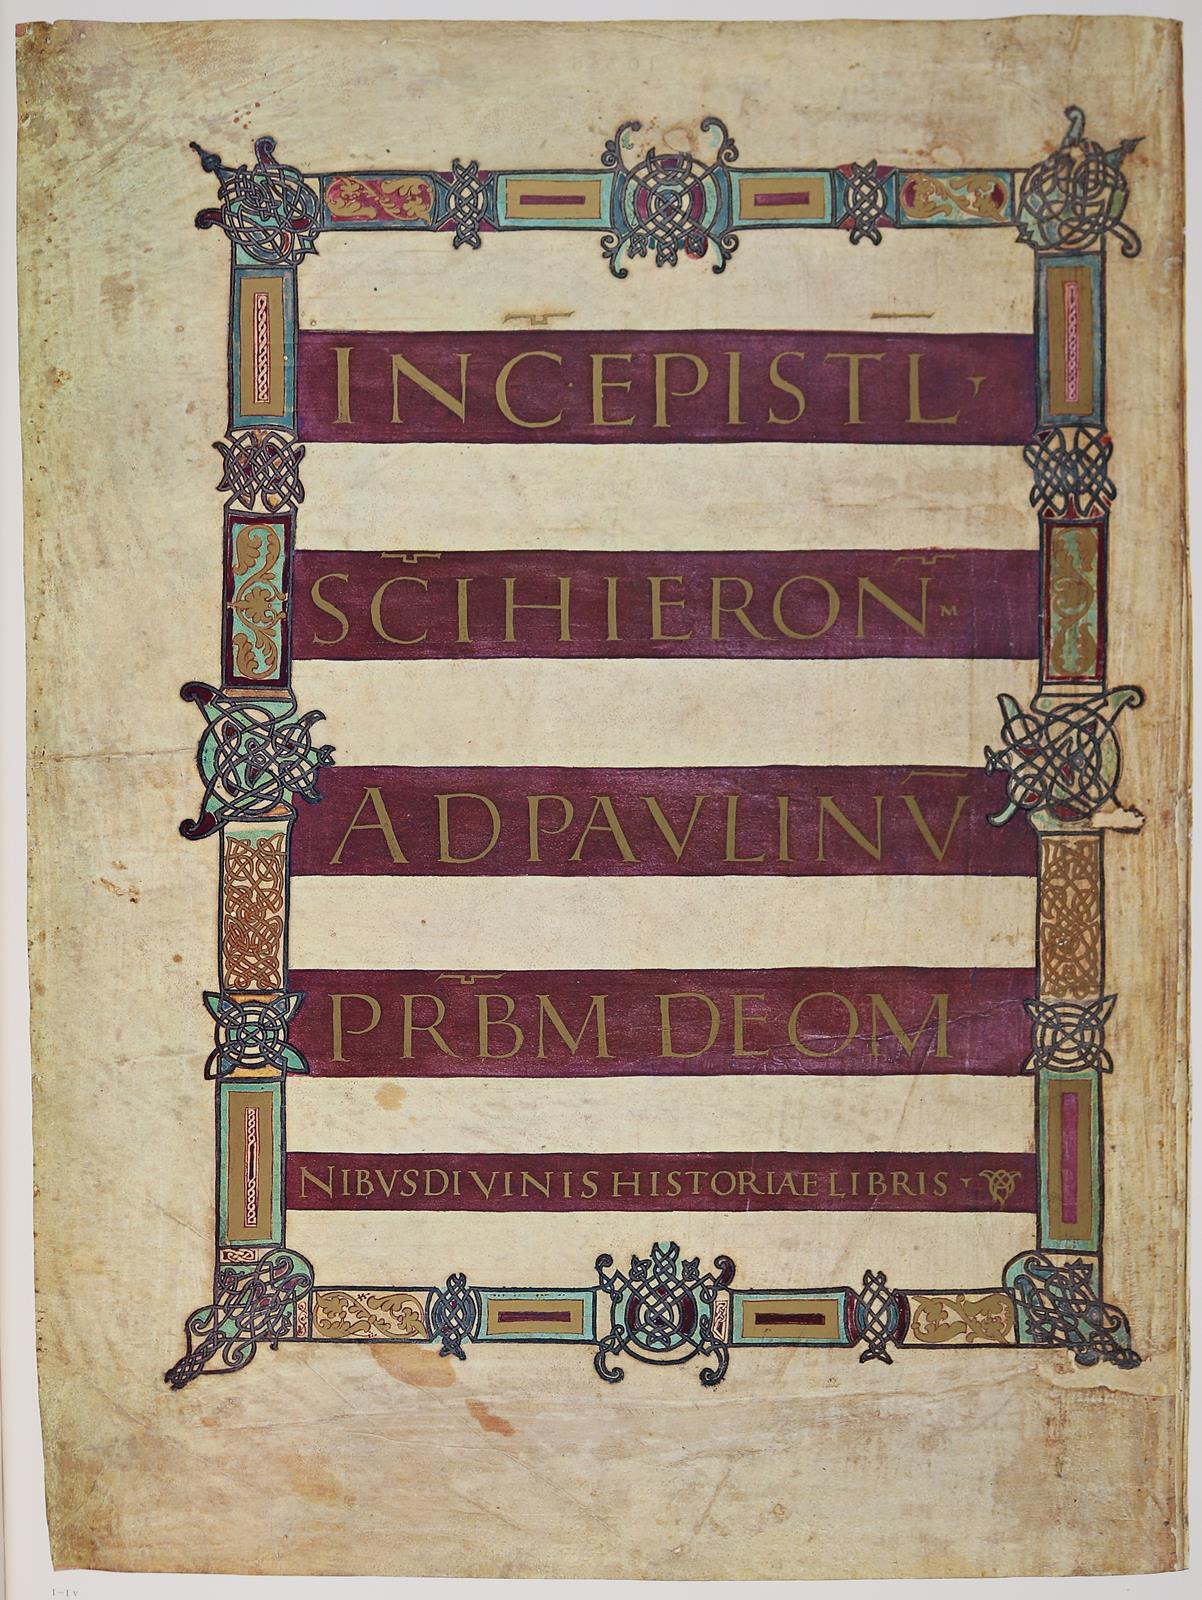 INC·EPISTL
SC̄I HIERON̄M
AD PAVLINV̄
PRB̄M DE OM
NIBVS DIVINIS HISTORIAE LIBRIS
I–I v